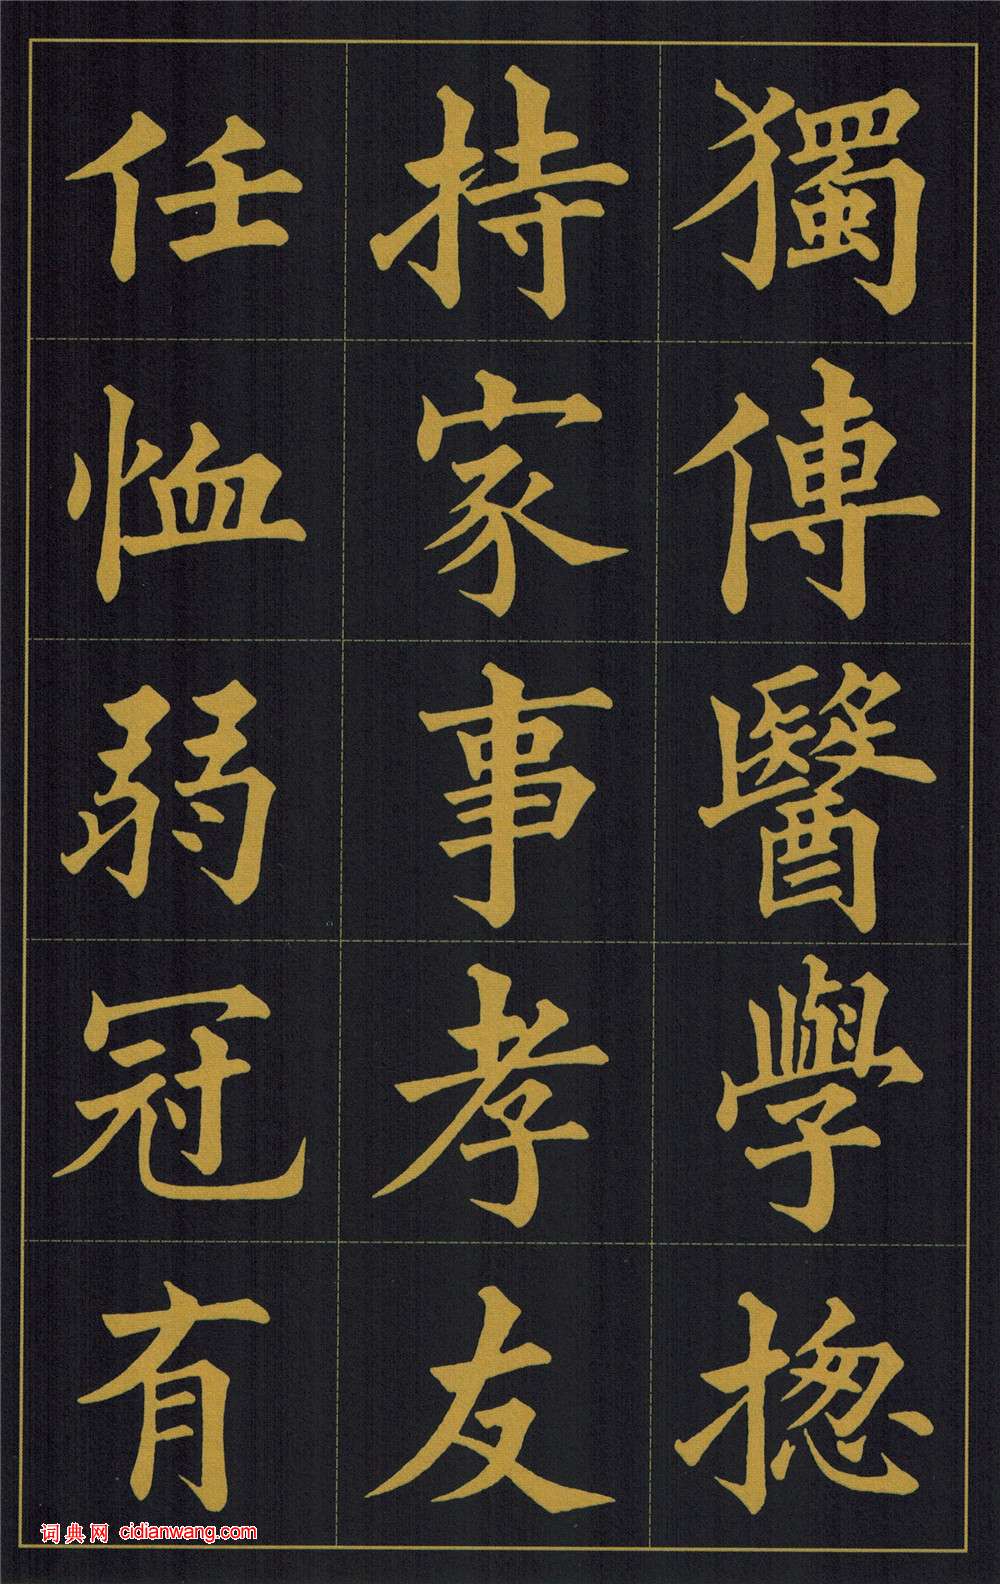 獨傳醫學揔
持家事孝友
任恤弱冠有
词典网 cidianwang.com